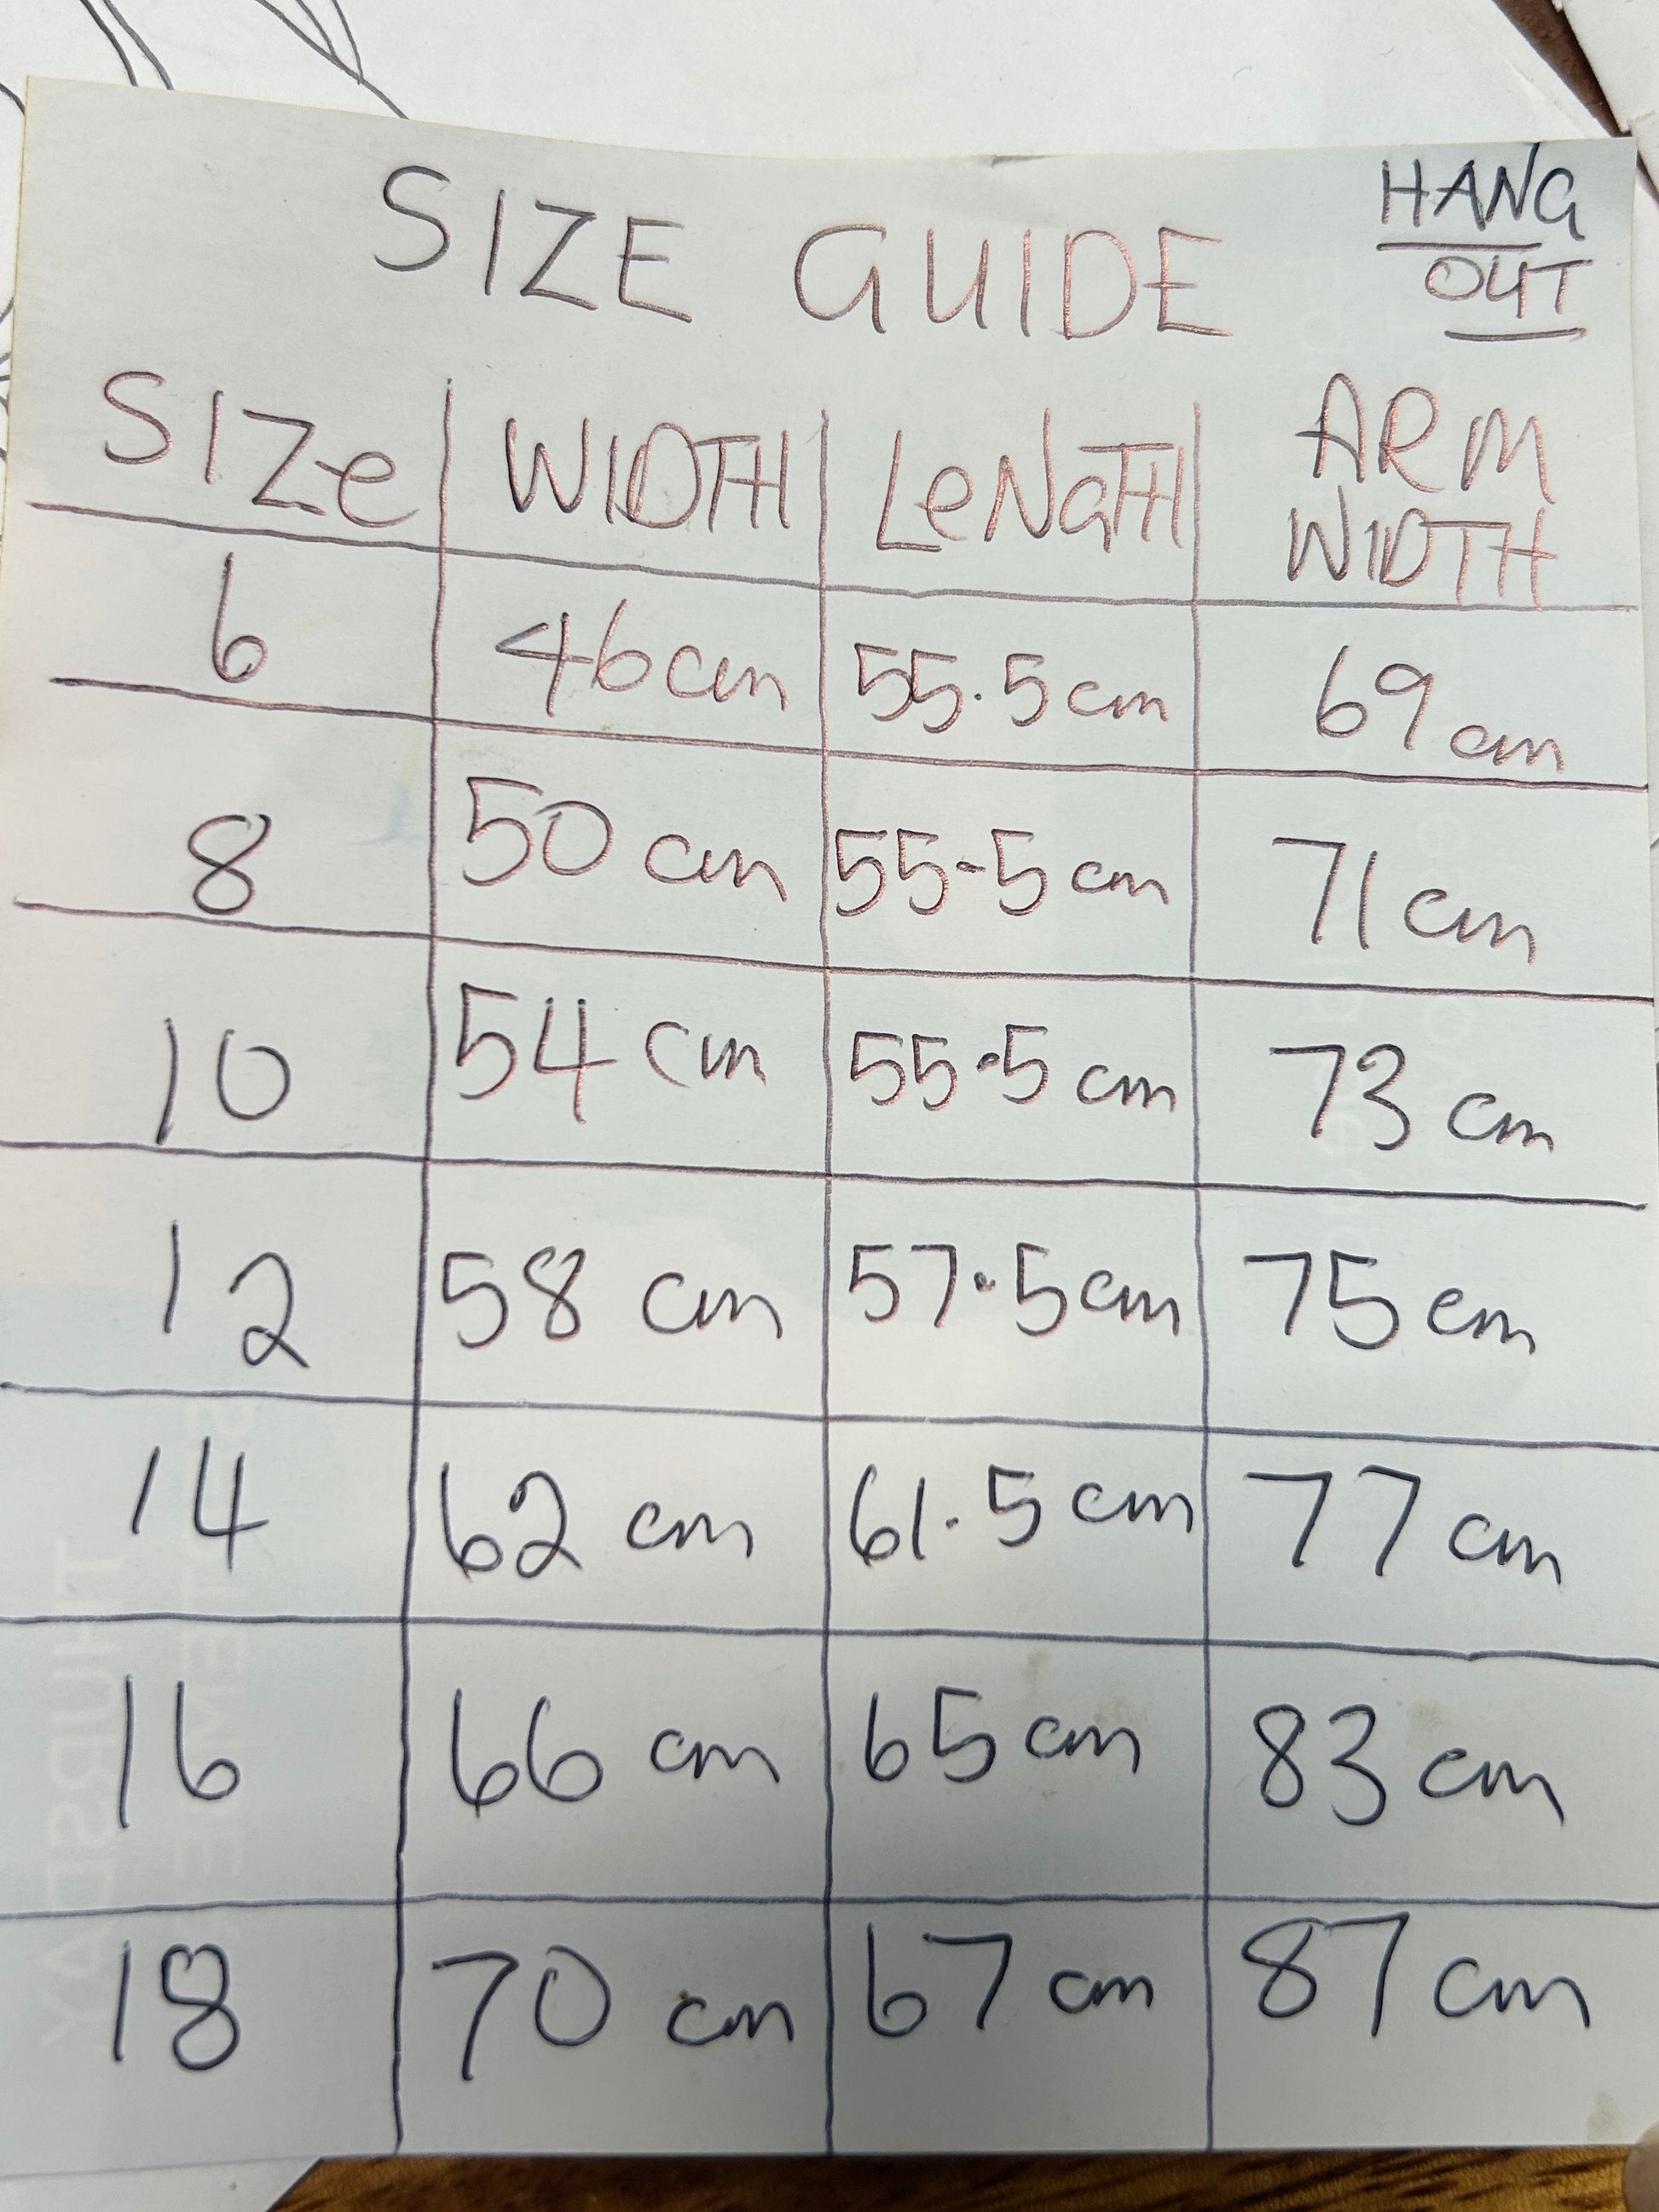 SIZE GUIDE
HANG
OUT
SIZe WIDTH LeNGTH ARM WIDTH
6 46cm 55.5cm 69cm
8 50cm 55.5cm 71cm
10 54cm 55.5cm 73cm
12 58cm 57.5cm 75cm
14 62cm 61.5cm 77cm
16 66cm 65cm 83cm
18 70cm 67cm 87cm
THURSDAY